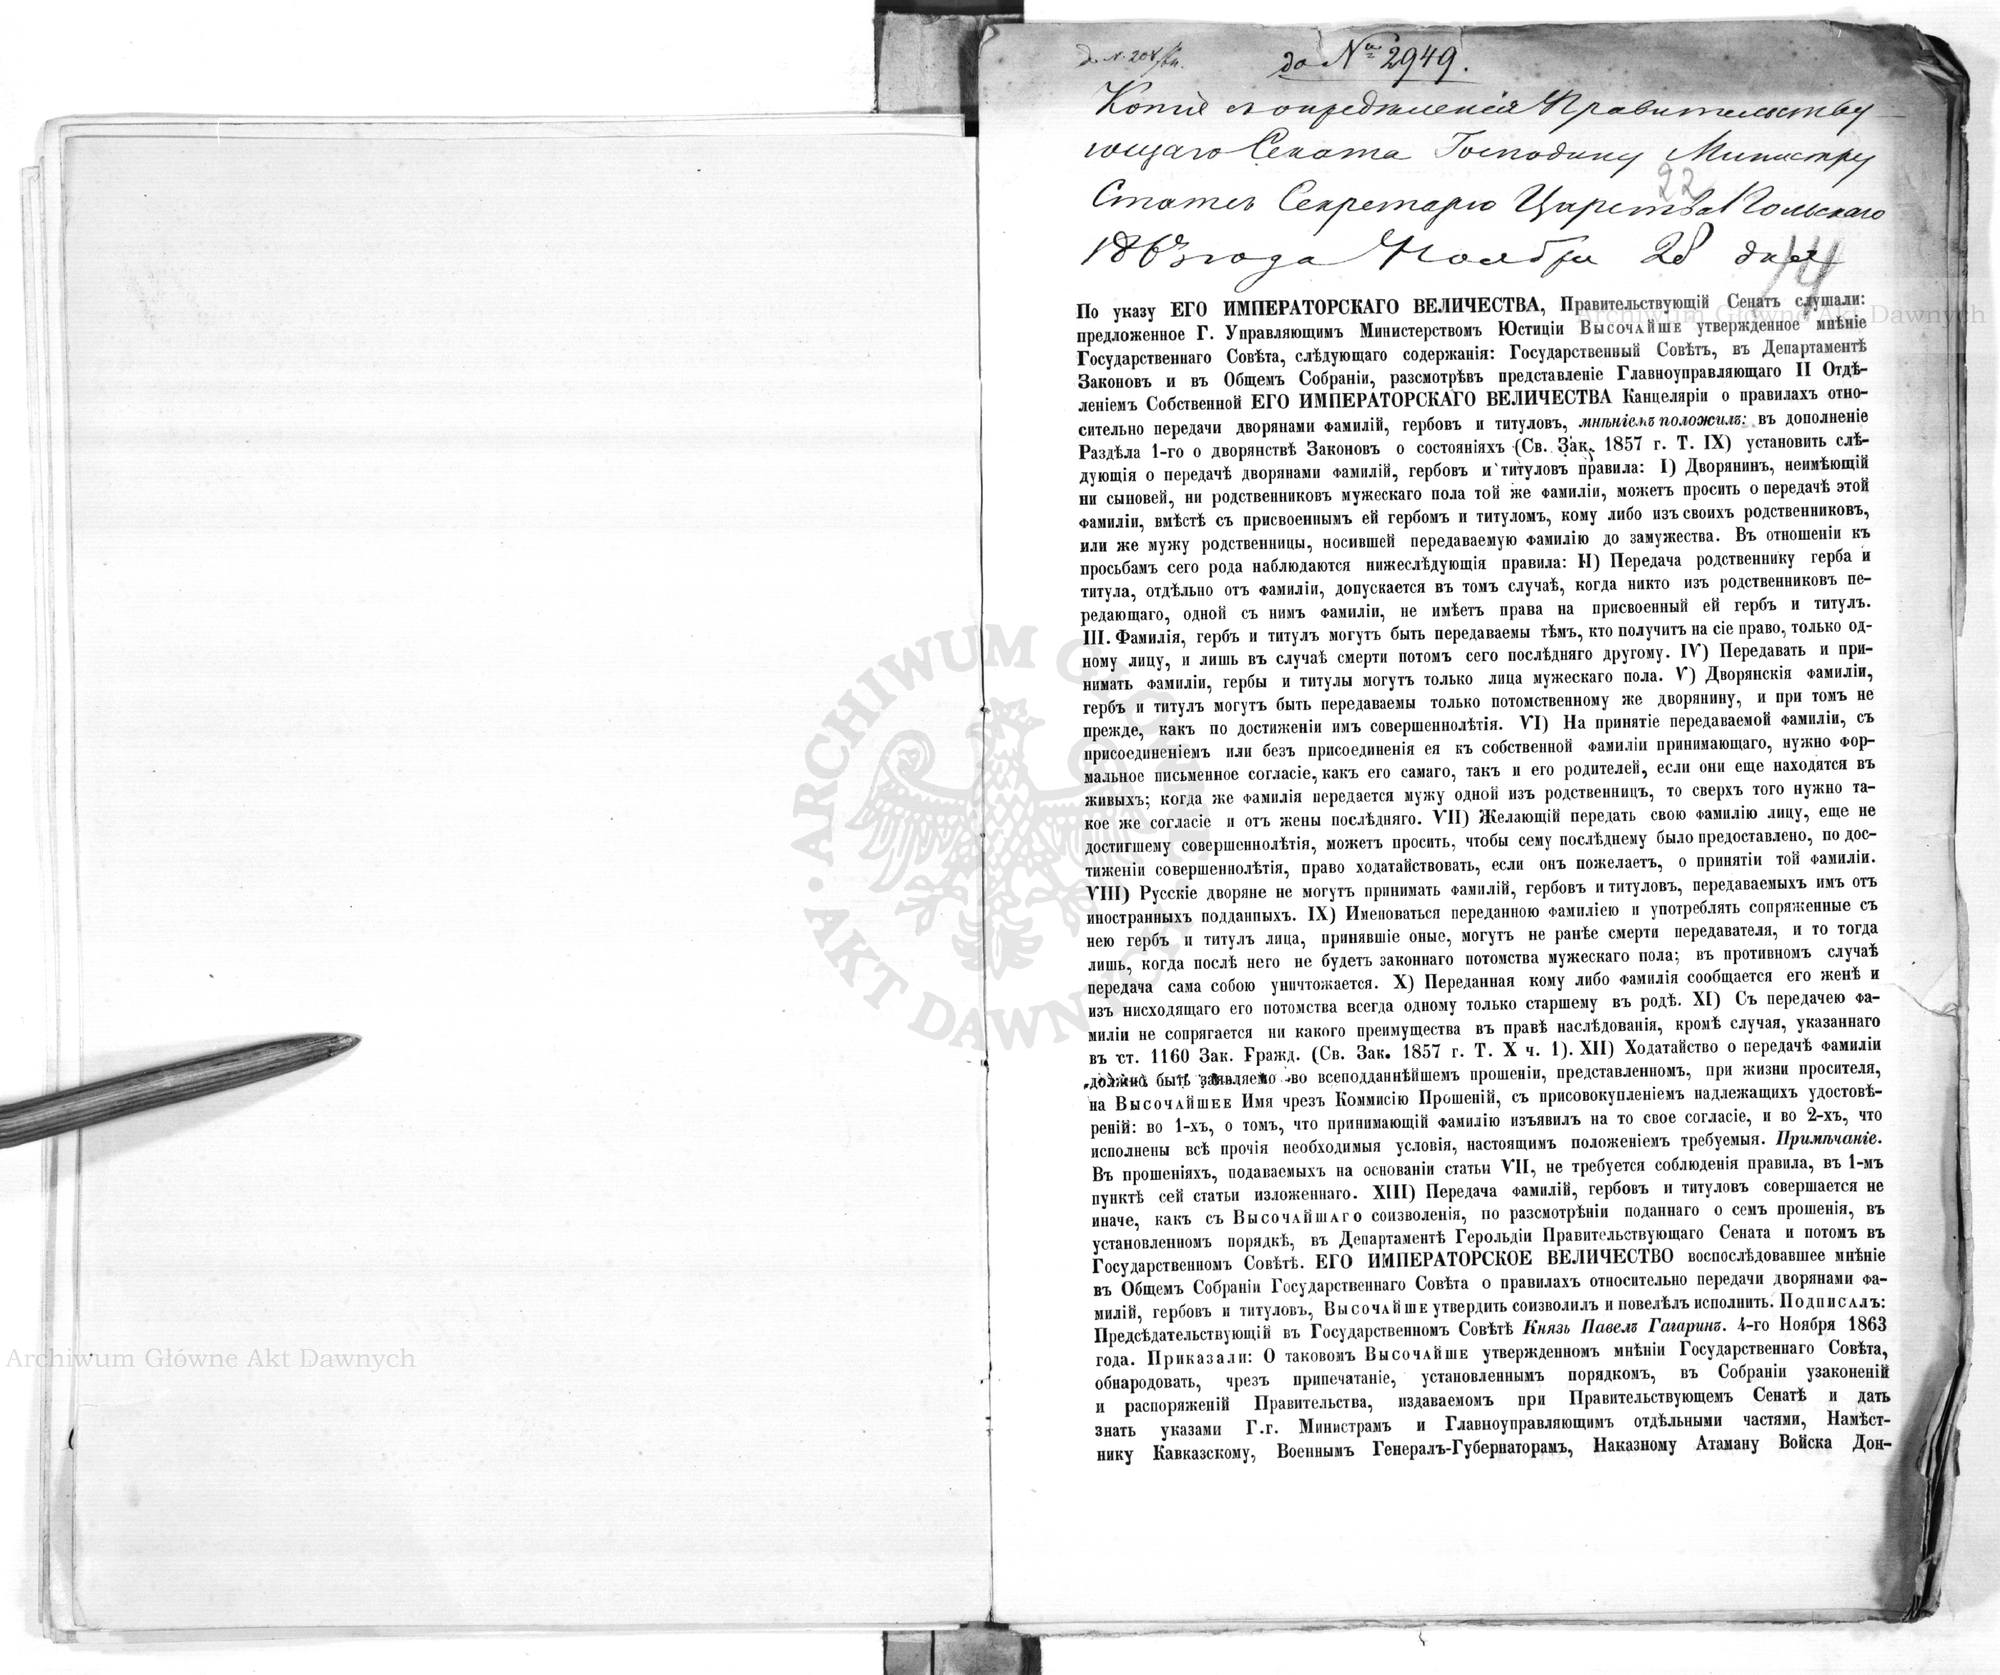 до № 2949.
Копія съ опредѣленія Правительству-
ющаго Сената Господину Министру
Статсъ Секретарю Царства Польскаго
22
1863 года Ноября 28 дня
14
По указу ЕГО ИМПЕРАТОРСКАГО ВЕЛИЧЕСТВА, Правительствующій Сенатъ слушали:
предложенное Г. Управляющимъ Министерствомъ Юстиціи Высочайше утвержденное мнѣніе
Государственнаго Совѣта, слѣдующаго содержанія: Государственный Совѣтъ, въ Департаментѣ
Законовъ и въ Общемъ Собраніи, разсмотрѣвъ представленіе Главноуправляющаго II Отдѣ-
леніемъ Собственной ЕГО ИМПЕРАТОРСКАГО ВЕЛИЧЕСТВА Канцеляріи о правилахъ отно-
сительно передачи дворянами фамилій, гербовъ и титуловъ, мнѣніемъ положилъ: въ дополненіе
Раздѣла 1-го о дворянствѣ Законовъ о состояніяхъ (Св. Зак. 1857 г. Т. IX) установить слѣ-
дующія о передачѣ дворянами фамилій, гербовъ и титуловъ правила: I) Дворянинъ, неимѣющій
ни сыновей, ни родственниковъ мужескаго пола той же фамиліи, можетъ просить о передачѣ этой
фамиліи, вмѣстѣ съ присвоеннымъ ей гербомъ и титуломъ, кому либо изъ своихъ родственниковъ,
или же мужу родственницы, носившей передаваемую фамилію до замужества. Въ отношеніи къ
просьбамъ сего рода наблюдаются нижеслѣдующія правила: II) Передача родственнику герба и
титула, отдѣльно отъ фамиліи, допускается въ томъ случаѣ, когда никто изъ родственниковъ пе-
редающаго, одной съ нимъ фамиліи, не имѣетъ права на присвоенный ей гербъ и титулъ.
III. Фамилія, гербъ и титулъ могутъ быть передаваемы тѣмъ, кто получитъ на сіе право, только од-
ному лицу, и лишь въ случаѣ смерти потомъ сего послѣдняго другому. IV) Передавать и при-
нимать фамиліи, гербы и титулы могутъ только лица мужескаго пола. V) Дворянскія фамиліи,
гербъ и титулъ могутъ быть передаваемы только потомственному же дворянину, и при томъ не
прежде, какъ по достиженіи имъ совершеннолѣтія. VI) На принятіе передаваемой фамиліи, съ
присоединеніемъ или безъ присоединенія ея къ собственной фамиліи принимающаго, нужно фор-
мальное письменное согласіе, какъ его самаго, такъ и его родителей, если они еще находятся въ
живыхъ; когда же фамилія передается мужу одной изъ родственницъ, то сверхъ того нужно та-
кое же согласіе и отъ жены послѣдняго. VII) Желающій передать свою фамилію лицу, еще не
достигшему совершеннолѣтія, можетъ просить, чтобы сему послѣднему было предоставлено, по дос-
тиженіи совершеннолѣтія, право ходатайствовать, если онъ пожелаетъ, о принятіи той фамиліи.
VIII) Русскіе дворяне не могутъ принимать фамилій, гербовъ и титуловъ, передаваемыхъ имъ отъ
иностранныхъ подданныхъ. IX) Именоваться переданною фамиліею и употреблять сопряженные съ
нею гербъ и титулъ лица, принявшіе оные, могутъ не ранѣе смерти передавателя, и то тогда
лишь, когда послѣ него не будетъ законнаго потомства мужескаго пола; въ противномъ случаѣ
передача сама собою уничтожается. X) Переданная кому либо фамилія сообщается его женѣ и
изъ нисходящаго его потомства всегда одному только старшему въ родѣ. XI) Съ передачею фа-
миліи не сопрягается ни какого преимущества въ правѣ наслѣдованія, кромѣ случая, указаннаго
въ ст. 1160 Зак. Гражд. (Св. Зак. 1857 г. Т. X ч. 1). XII) Ходатайство о передачѣ фамиліи
должно быть заявляемо во всеподданнѣйшемъ прошеніи, представленномъ, при жизни просителя,
на Высочайшее Имя чрезъ Коммисію Прошеній, съ присовокупленіемъ надлежащихъ удостовѣ-
реній: во 1-хъ, о томъ, что принимающій фамилію изъявилъ на то свое согласіе, и во 2-хъ, что
исполнены всѣ прочія необходимыя условія, настоящимъ положеніемъ требуемыя. Примѣчаніе.
Въ прошеніяхъ, подаваемыхъ на основаніи статьи VII, не требуется соблюденія правила, въ 1-мъ
пунктѣ сей статьи изложеннаго. XIII) Передача фамилій, гербовъ и титуловъ совершается не
иначе, какъ съ Высочайшаго соизволенія, по разсмотрѣніи поданнаго о семъ прошенія, въ
установленномъ порядкѣ, въ Департаментѣ Герольдіи Правительствующаго Сената и потомъ въ
Государственномъ Совѣтѣ. ЕГО ИМПЕРАТОРСКОЕ ВЕЛИЧЕСТВО воспослѣдовавшее мнѣніе
въ Общемъ Собраніи Государственнаго Совѣта о правилахъ относительно передачи дворянами фа-
милій, гербовъ и титуловъ, Высочайше утвердить соизволилъ и повелѣлъ исполнить. Подписалъ:
Предсѣдательствующій въ Государственномъ Совѣтѣ Князь Павелъ Гагаринъ. 4-го Ноября 1863
года. Приказали: О таковомъ Высочайше утвержденномъ мнѣніи Государственнаго Совѣта,
обнародовать, чрезъ припечатаніе, установленнымъ порядкомъ, въ Собраніи узаконеній
и распоряженій Правительства, издаваемомъ при Правительствующемъ Сенатѣ и дать
знать указами Г.г. Министрамъ и Главноуправляющимъ отдѣльными частями, Намѣст-
нику Кавказскому, Военнымъ Генералъ-Губернаторамъ, Наказному Атаману Войска Дон-
Archiwum Główne Akt Dawnych
ARCHIWUM GŁÓWNE · AKT DAWNYCH ·
Archiwum Główne Akt Dawnych